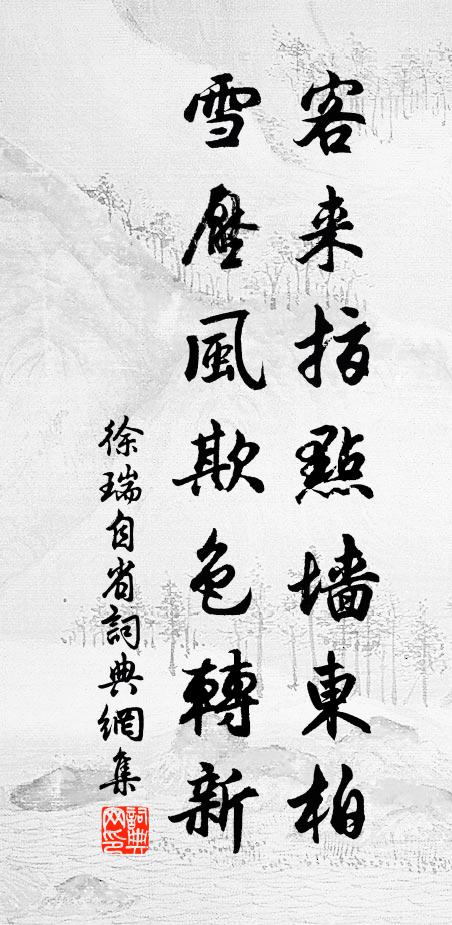 客来指點墙東柏
雪壓風欺色轉新
徐瑞自省詞典網集
詞典網印